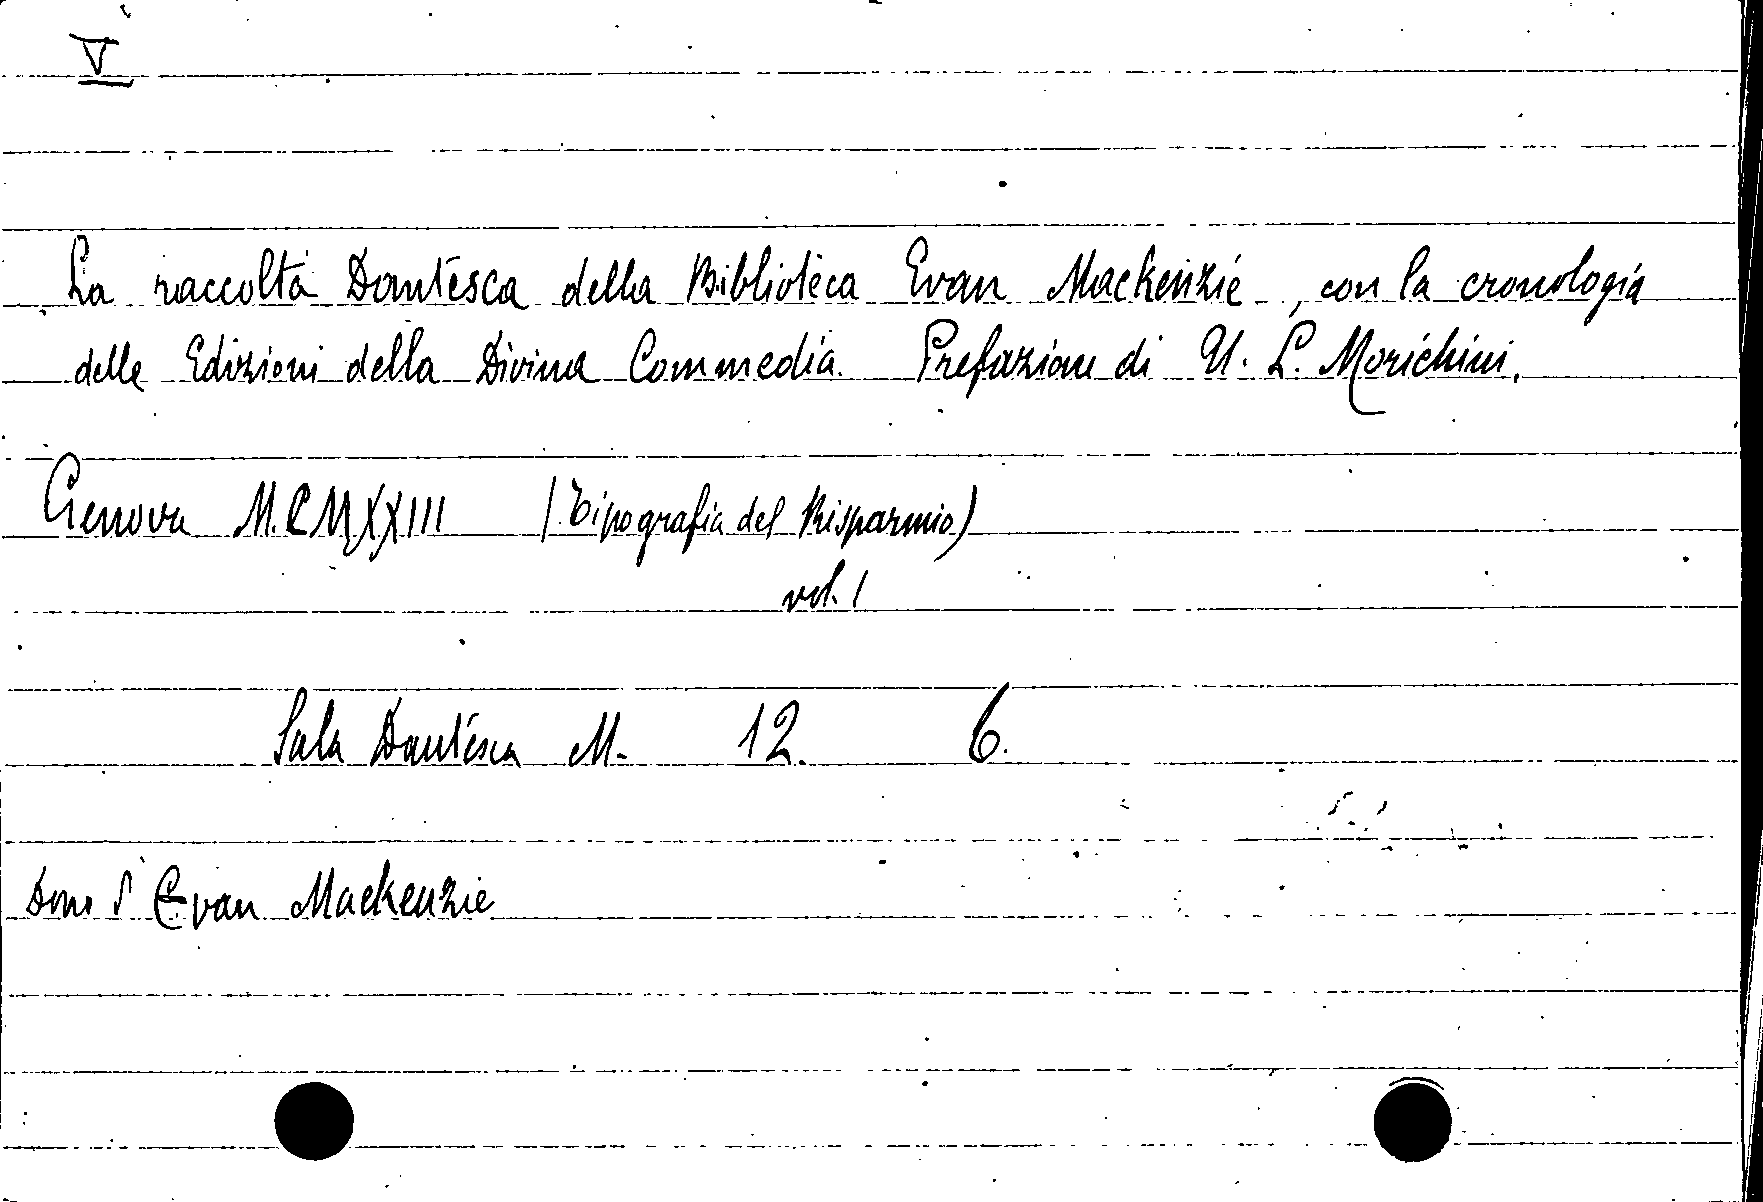 V
La raccolta Dantesca della Biblioteca Evan Mackenzie, con la cronologia
delle Edizioni della Divina Commedia. Prefazione di U. L. Morichini.
Genova M.CMXXIII (Tipografia del Risparmio)
vol. 1
Sala Dantesca M. 12. 6.
Dono d' Evan Mackenzie